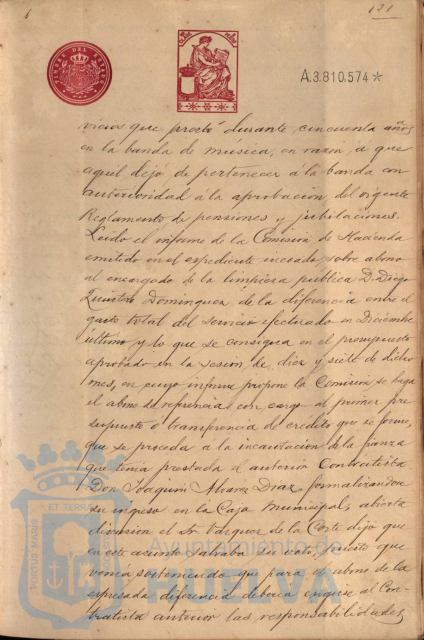 121
A.3.810.574*
vicios que prestó durante cincuenta años
en la banda de musica, en razón, á que
aquel dejó de pertenecer á la banda con
anterioridad á la aprobación del vigente
Reglamento de pensiones y jubilaciones.
Leido el informe de la Comisión de Hacienda
emitido en el expediente incoado sobre abono
al encargado de la limpieza pública D. Diego
Quintero Dominguez de la diferencia entre el
gasto total del servicio efectuado en Diciembre
último y lo que se consigna en el presupuesto
aprobado en la sesión de diez y siete de dicho
mes, en cuyo informe propone la Comisión se haga
el abono de referencia con cargo al primer pre
supuesto ó transferencia de crédito que se forme,
que se proceda á la incautación de la fianza
que tenia prestada el anterior Contratista
Don Joaquin Alvarez Diaz formalizandose
su ingreso en la Caja Municipal, abierta
discusión el Sr. Vazquez de la Corte dijo que
en este asunto salvaba su voto, puesto que
venia sosteniendo que para el abono de la
expresada diferencia deberia exigirse al Con-
tratista anterior las responsabilidades
Ayuntamiento de
HUELVA
PORTUS MARIS
ET TERRAE